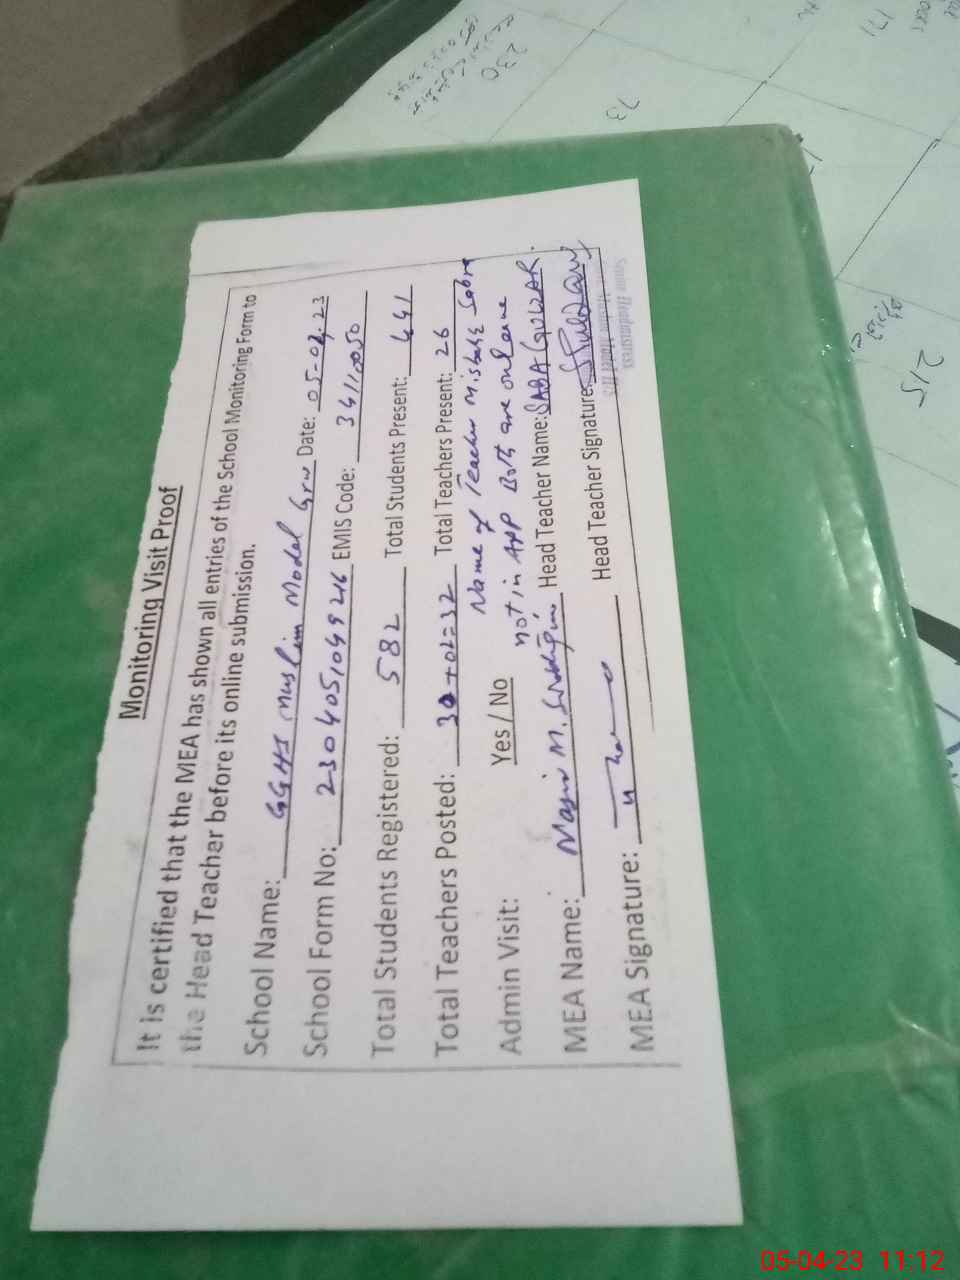 Monitoring Visit Proof
It is certified that the MEA has shown all entries of the School Monitoring Form to
the Head Teacher before its online submission.
School Name: GGHS Muslim Model Grw Date: 05-04.23
School Form No: 2304051049216 EMIS Code: 34110050
Total Students Registered: 582 Total Students Present: 441
Total Teachers Posted: 30+02=32 Total Teachers Present: 26
Name of Teacher mistake Sabra
Admin Visit: Yes / No not in APP Both are on leave
MEA Name: M. Head Teacher Name: SABA GULZAR.
MEA Signature: Head Teacher Signature:
Senior Headmistress
Muslim Model H/S
230
73
171
215
05-04-23 11:12